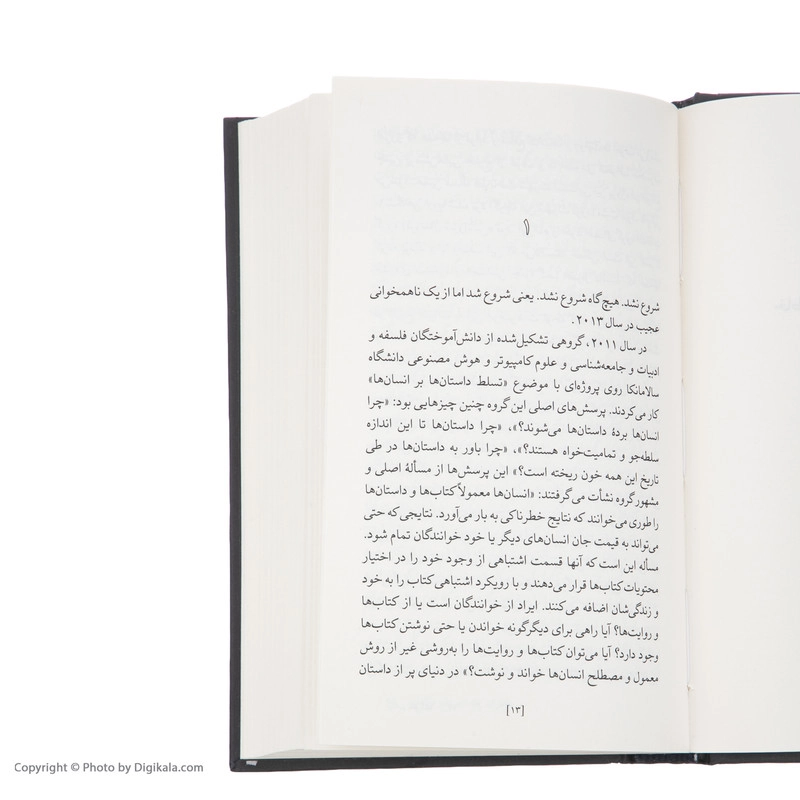 ۱
شروع نشد. هیچ‌گاه شروع نشد. یعنی شروع شد اما از یک ناهمخوانی
عجیب در سال ۲۰۱۳.
در سال ۲۰۱۱، گروهی تشکیل‌شده از دانش‌آموختگان فلسفه و
ادبیات و جامعه‌شناسی و علوم کامپیوتر و هوش مصنوعی دانشگاه
سالامانکا روی پروژه‌ای با موضوع «تسلط داستان‌ها بر انسان‌ها»
کار می‌کردند. پرسش‌های اصلی این گروه چنین چیزهایی بود: «چرا
انسان‌ها بردهٔ داستان‌ها می‌شوند؟»، «چرا داستان‌ها تا این اندازه
سلطه‌جو و تمامیت‌خواه هستند؟»، «چرا باور به داستان‌ها در طی
تاریخ این همه خون ریخته است؟» این پرسش‌ها از مسألهٔ اصلی و
مشهور گروه نشأت می‌گرفتند: «انسان‌ها معمولاً کتاب‌ها و داستان‌ها
را طوری می‌خوانند که نتایج خطرناکی به بار می‌آورد. نتایجی که حتی
می‌تواند به قیمت جان انسان‌های دیگر یا خود خوانندگان تمام شود.
مسأله این است که آنها قسمت اشتباهی از وجود خود را در اختیار
محتویات کتاب‌ها قرار می‌دهند و با رویکرد اشتباهی کتاب را به خود
و زندگی‌شان اضافه می‌کنند. ایراد از خوانندگان است یا از کتاب‌ها
و روایت‌ها؟ آیا راهی برای دیگرگونه خواندن یا حتی نوشتن کتاب‌ها
وجود دارد؟ آیا می‌توان کتاب‌ها و روایت‌ها را به‌روشی غیر از روش
معمول و مصطلح انسان‌ها خواند و نوشت؟» در دنیای پر از داستان
[۱۳]
Copyright © Photo by Digikala.com